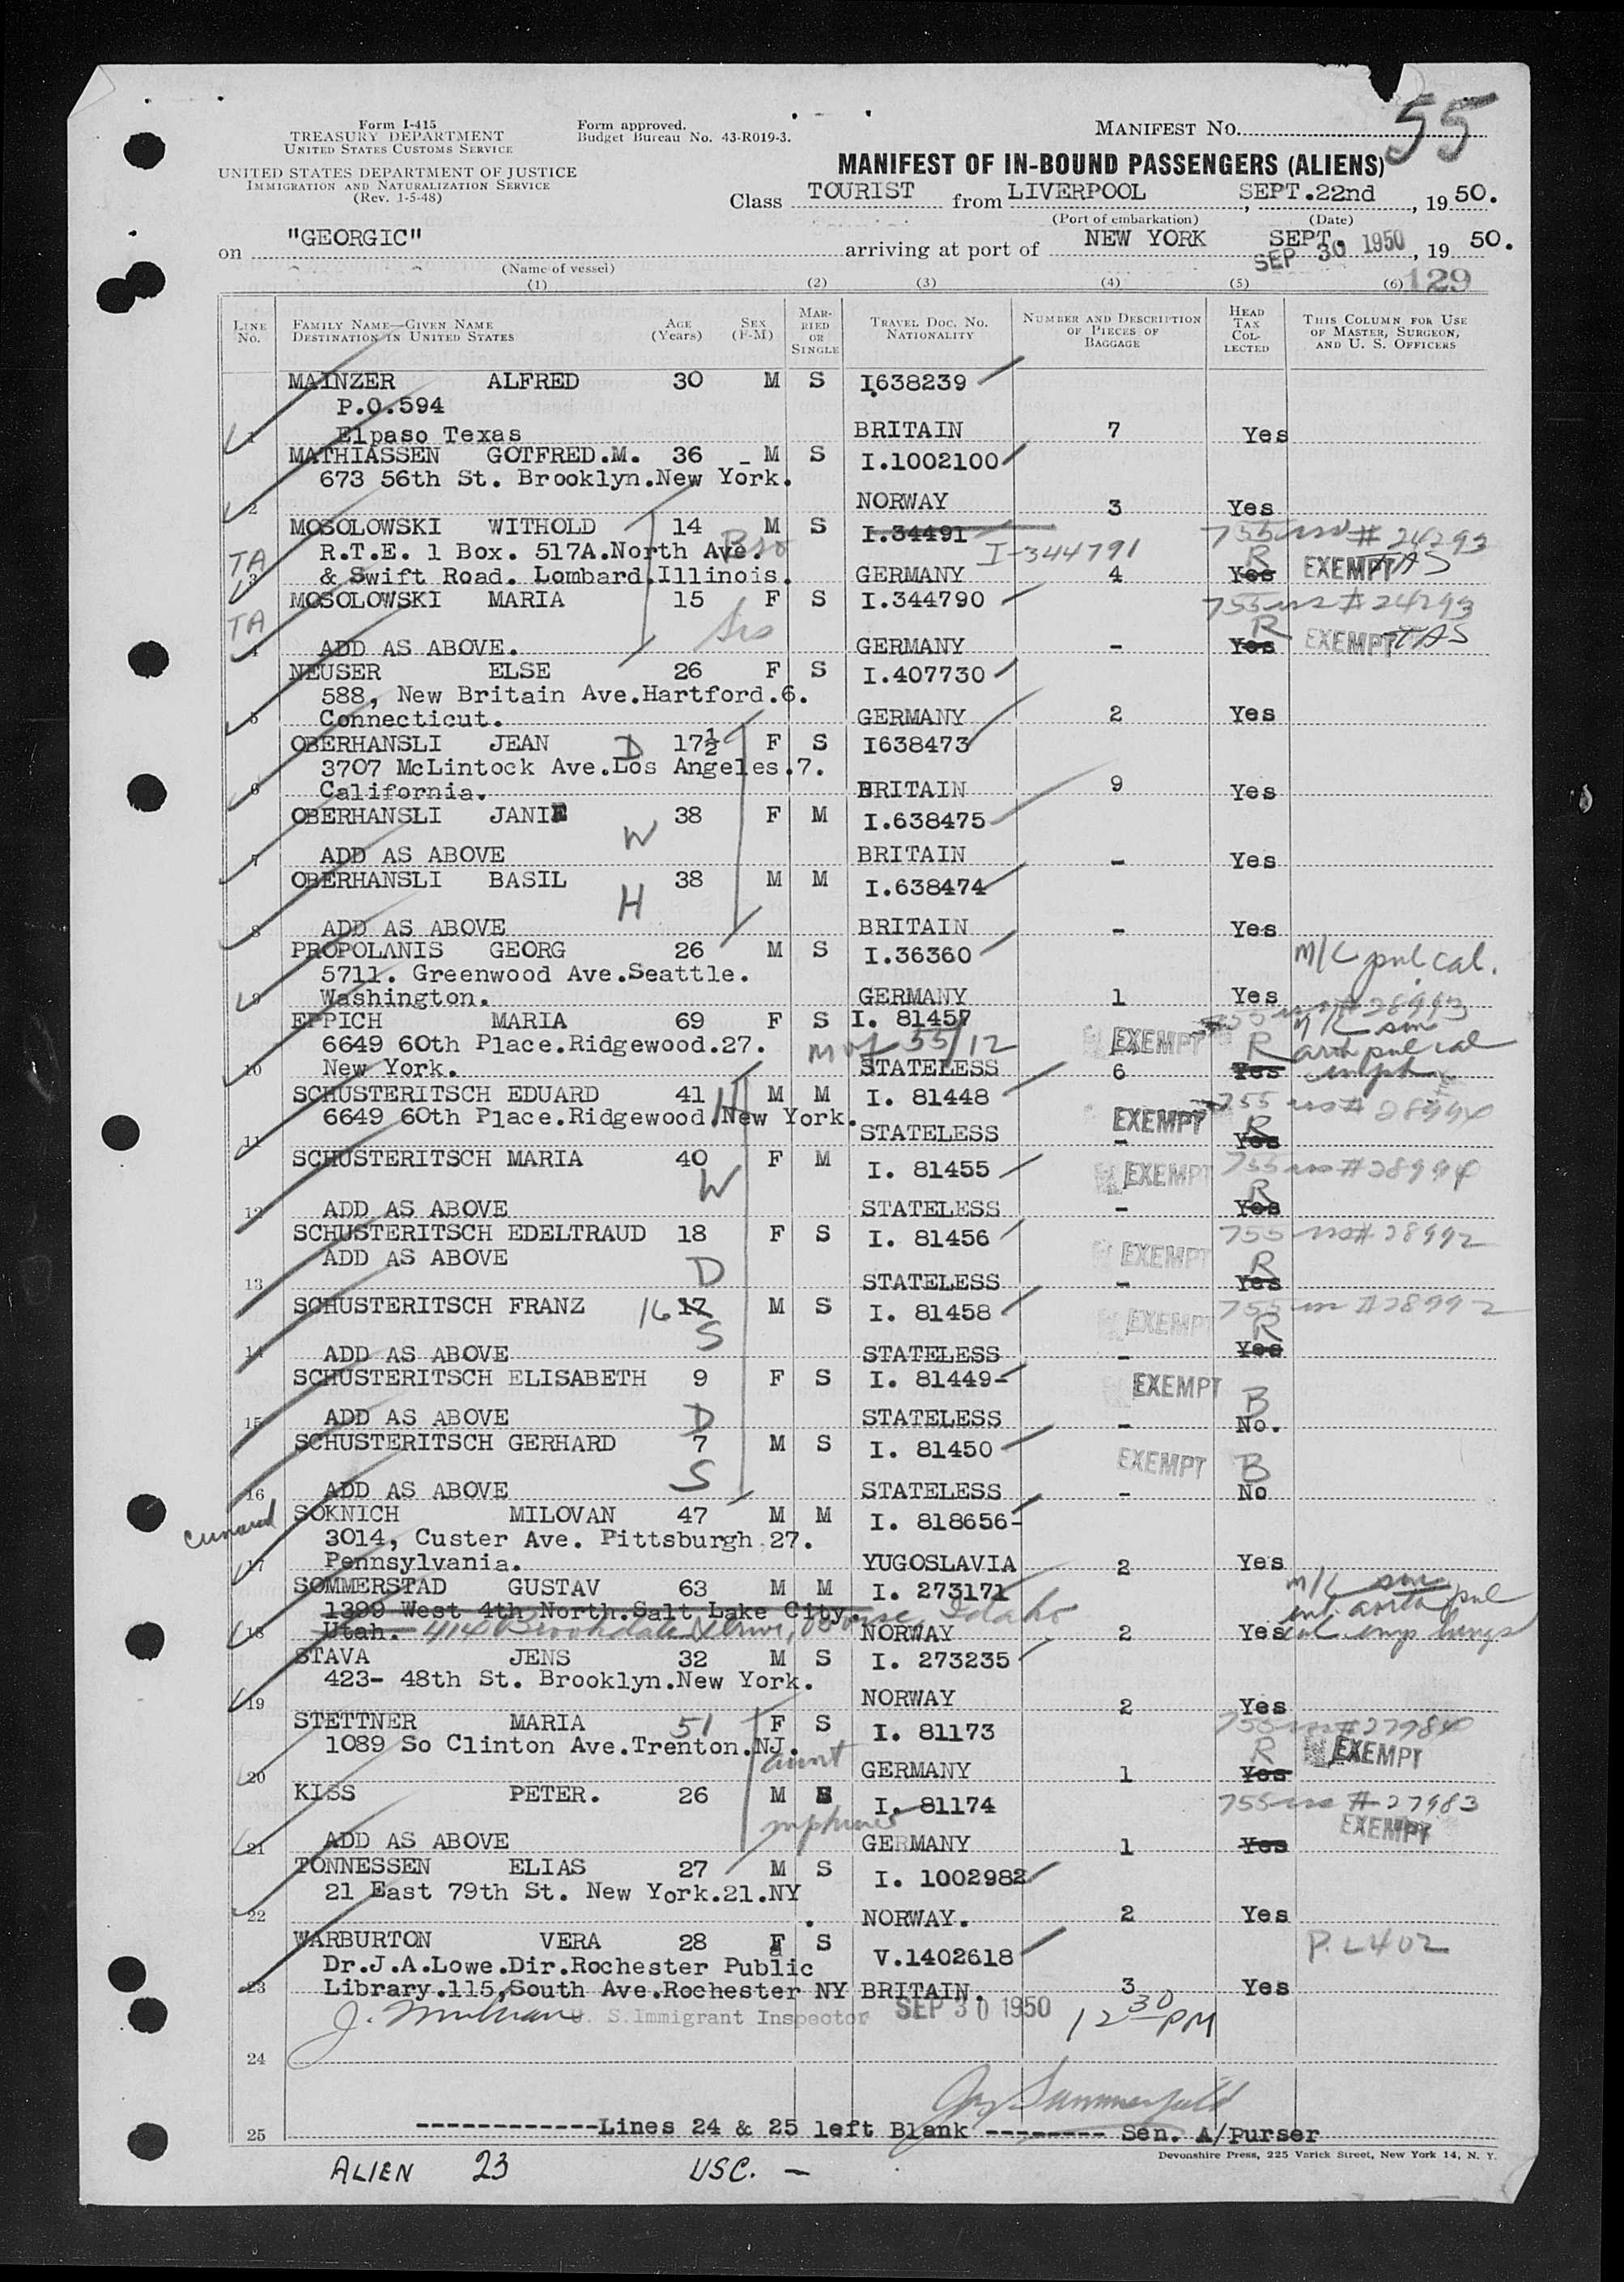 55
Form I-415
TREASURY DEPARTMENT
UNITED STATES CUSTOMS SERVICE
Form approved.
Budget Bureau No. 43-R019-3.
MANIFEST NO.
UNITED STATES DEPARTMENT OF JUSTICE
IMMIGRATION AND NATURALIZATION SERVICE
(Rev. 1-5-48)
MANIFEST OF IN-BOUND PASSENGERS (ALIENS)
Class TOURIST from LIVERPOOL, SEPT.22nd, 19 50.
(Port of embarkation) (Date)
on "GEORGIC" arriving at port of NEW YORK SEPT. SEP 30 1950, 19 50.
(Name of vessel)
(1) (2) (3) (4) (5) (6) 129
LINE No. FAMILY NAME—GIVEN NAME DESTINATION IN UNITED STATES AGE (Years) SEX (F-M) MARRIED OR SINGLE TRAVEL DOC. NO. NATIONALITY NUMBER AND DESCRIPTION OF PIECES OF BAGGAGE HEAD TAX COLLECTED THIS COLUMN FOR USE OF MASTER, SURGEON, AND U. S. OFFICERS
MAINZER ALFRED 30 M S I638239
P.O.594
1 Elpaso Texas BRITAIN 7 Yes
MATHIASSEN GOTFRED.M. 36 M S I.1002100
673 56th St. Brooklyn.New York.
2 NORWAY 3 Yes
MOSOLOWSKI WITHOLD 14 M S I.34491 # 24293
TA R.T.E. 1 Box. 517A.North Ave. Bro I-344791 R
3 & Swift Road. Lombard.Illinois. GERMANY 4 Yes EXEMPT TAS
MOSOLOWSKI MARIA 15 F S I.344790 # 24293
TA Sis R
4 ADD AS ABOVE. GERMANY - Yes EXEMPT TAS
NEUSER ELSE 26 F S I.407730
588, New Britain Ave.Hartford.6.
5 Connecticut. GERMANY 2 Yes
OBERHANSLI JEAN D 17½ F S I638473
3707 McLintock Ave.Los Angeles.7.
6 California. BRITAIN 9 Yes
OBERHANSLI JANIE 38 F M I.638475
W
7 ADD AS ABOVE BRITAIN - Yes
OBERHANSLI BASIL 38 M M I.638474
H
8 ADD AS ABOVE BRITAIN - Yes
PROPOLANIS GEORG 26 M S I.36360 M/C pul cal.
5711. Greenwood Ave.Seattle.
9 Washington. GERMANY 1 Yes
EPPICH MARIA 69 F S I. 81457 # 28993
6649 60th Place.Ridgewood.27. 55/12 EXEMPT R M/C sen arth pul cal
10 New York. STATELESS 6 Yes emph
SCHUSTERITSCH EDUARD 41 H M M I. 81448 # 28994
6649 60th Place.Ridgewood.New York. EXEMPT R
11 STATELESS - Yes
SCHUSTERITSCH MARIA 40 F M I. 81455 EXEMPT # 28994
W R
12 ADD AS ABOVE STATELESS - Yes
SCHUSTERITSCH EDELTRAUD 18 F S I. 81456 # 28992
ADD AS ABOVE D EXEMPT R
13 STATELESS - Yes
SCHUSTERITSCH FRANZ 16 17 M S I. 81458 EXEMPT # 28992
S R
14 ADD AS ABOVE STATELESS - Yes
SCHUSTERITSCH ELISABETH 9 F S I. 81449 EXEMPT
D B
15 ADD AS ABOVE STATELESS - No.
SCHUSTERITSCH GERHARD 7 M S I. 81450 EXEMPT
S B
16 ADD AS ABOVE STATELESS - No
cunard SOKNICH MILOVAN 47 M M I. 818656
3014, Custer Ave. Pittsburgh.27.
17 Pennsylvania. YUGOSLAVIA 2 Yes
SOMMERSTAD GUSTAV 63 M M I. 273171 M/C sen
1399 West 4th North.Salt Lake City. aorta pul
18 Utah. 414 Brookdale Drive, Boise, Idaho NORWAY 2 Yes emp lungs
STAVA JENS 32 M S I. 273235
423- 48th St. Brooklyn.New York.
19 NORWAY 2 Yes
STETTNER MARIA 51 F S I. 81173 # 27984
1089 So Clinton Ave.Trenton.NJ. aunt R EXEMPT
20 GERMANY 1 Yes
KISS PETER. 26 M S I. 81174 # 27983
EXEMPT
21 ADD AS ABOVE GERMANY 1 Yes
TONNESSEN ELIAS 27 M S I. 1002982
21 East 79th St. New York.21.NY
22 . NORWAY. 2 Yes
WARBURTON VERA 28 F S V.1402618 P. L 402
Dr.J.A.Lowe.Dir.Rochester Public
23 Library.115,South Ave.Rochester NY BRITAIN. 3 Yes
U. S. Immigrant Inspector SEP 30 1950 12 30 PM
24
25 ------------Lines 24 & 25 left Blank -------- Sen. A/Purser
Devonshire Press, 225 Varick Street, New York 14, N. Y.
ALIEN 23 USC. -